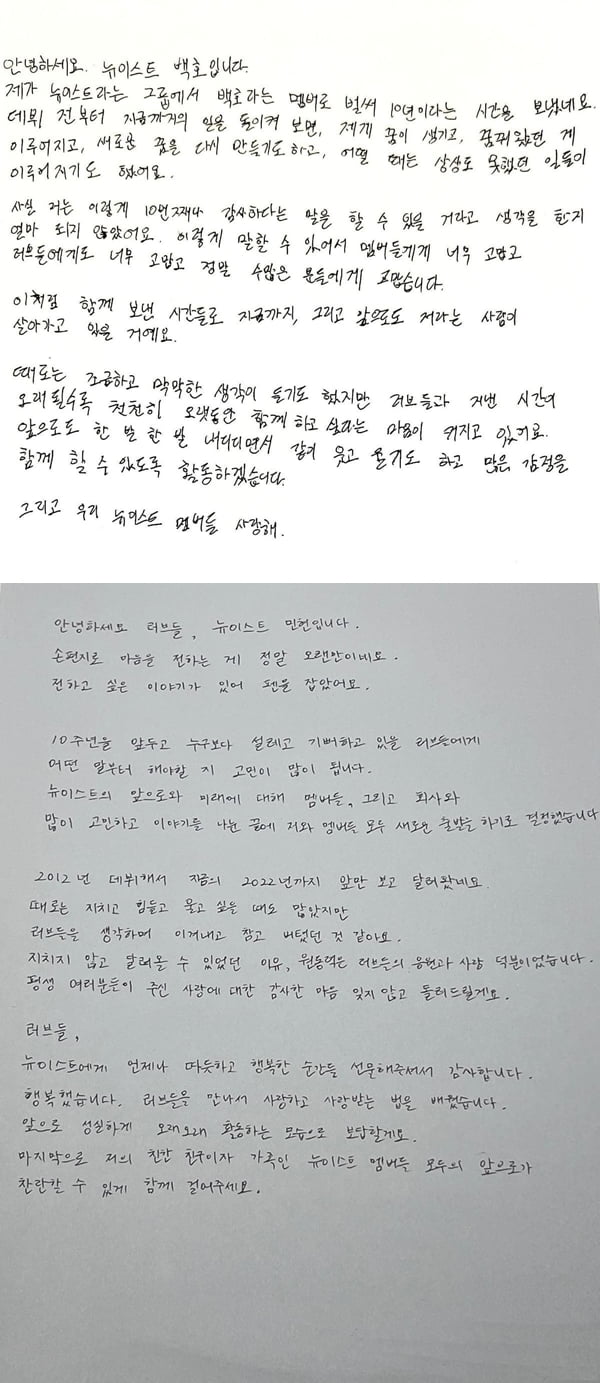 안녕하세요. 뉴이스트 백호입니다.
제가 뉴이스트라는 그룹에서 백호라는 멤버로 벌써 10년이라는 시간을 보냈네요.
데뷔 전부터 지금까지의 일을 돌이켜 보면, 제게 꿈이 생기고, 꿈꿔왔던 게
이루어지고, 새로운 꿈을 다시 만들기도 하고, 어떨 때는 상상도 못했던 일들이
이루어지기도 했어요.
사실 저는 이렇게 10번째나 감사하다는 말을 할 수 있을 거라고 생각을 한지
얼마 되지 않았어요. 이렇게 말할 수 있어서 멤버들에게 너무 고맙고
러브들에게도 너무 고맙고 정말 수많은 분들에게 고맙습니다.
이처럼 함께 보낸 시간들로 지금까지, 그리고 앞으로도 저라는 사람이
살아가고 있을 거예요.
때로는 조급하고 막막한 생각이 들기도 했지만 러브들과 지낸 시간이
오래될수록 천천히 오랫동안 함께 하고 싶다는 마음이 커지고 있어요.
앞으로도 한 발 한 발 내디디면서 같이 웃고 울기도 하고 많은 감정을
함께 할 수 있도록 활동하겠습니다.
그리고 우리 뉴이스트 멤버들 사랑해.
안녕하세요 러브들, 뉴이스트 민현입니다.
손편지로 마음을 전하는 게 정말 오랜만이네요.
전하고 싶은 이야기가 있어 펜을 잡았어요.
10주년을 앞두고 누구보다 설레고 기뻐하고 있을 러브들에게
어떤 말부터 해야할 지 고민이 많이 됩니다.
뉴이스트의 앞으로와 미래에 대해 멤버들, 그리고 회사와
많이 고민하고 이야기를 나눈 끝에 저와 멤버들 모두 새로운 출발을 하기로 결정했습니다
2012년 데뷔해서 지금의 2022년까지 앞만 보고 달려왔네요.
때로는 지치고 힘들고 울고 싶을 때도 많았지만
러브들을 생각하며 이겨내고 참고 버텼던 것 같아요.
지치지 않고 달려올 수 있었던 이유, 원동력은 러브들의 응원과 사랑 덕분이었습니다.
평생 여러분들이 주신 사랑에 대한 감사한 마음 잊지 않고 돌려드릴게요.
러브들,
뉴이스트에게 언제나 따듯하고 행복한 순간들 선물해주셔서 감사합니다.
행복했습니다. 러브들을 만나서 사랑하고 사랑받는 법을 배웠습니다.
앞으로 성실하게 오래오래 활동하는 모습으로 보답할게요.
마지막으로 저의 친한 친구이자 가족인 뉴이스트 멤버들 모두의 앞으로가
찬란할 수 있게 함께 걸어주세요.